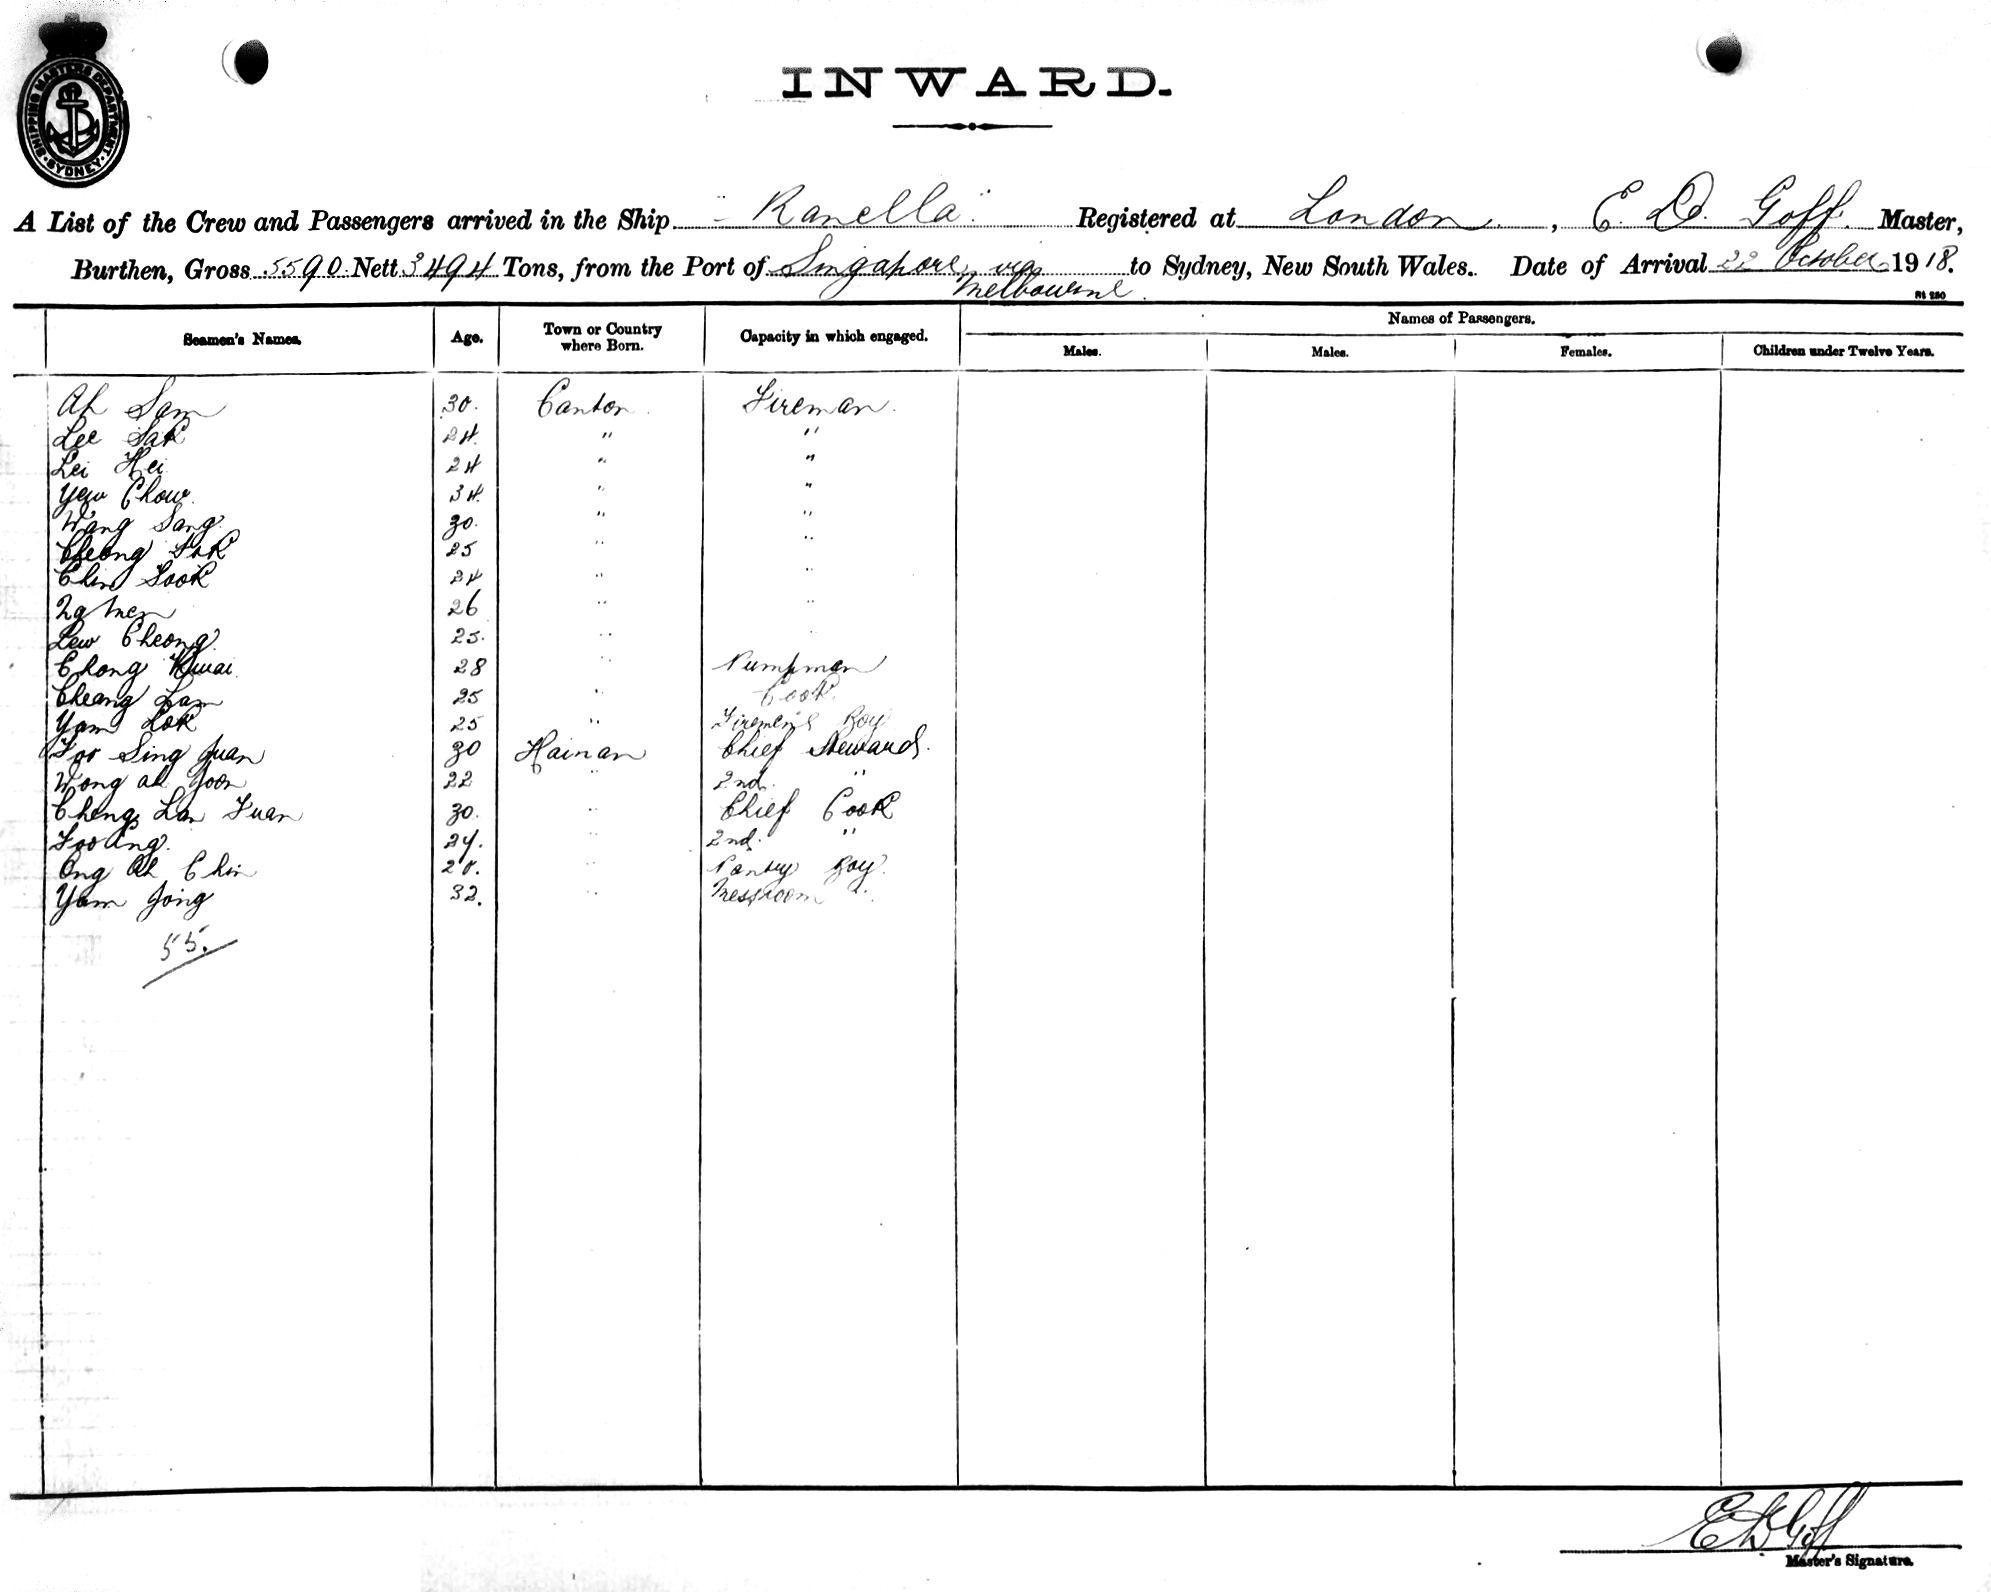 SHIPPING MASTERS DEPARTMENT · SYDNEY ·
INWARD.
A List of the Crew and Passengers arrived in the Ship "Ranella" Registered at London, E. D. Goff. Master,
Burthen, Gross 5590 Nett 3494 Tons, from the Port of Singapore via Melbourne to Sydney, New South Wales. Date of Arrival 22 October 1918.
Seamen's Names. Age. Town or Country where Born. Capacity in which engaged. Names of Passengers.
Males. Males. Females. Children under Twelve Years.
Ah Sam 30. Canton Fireman.
Lee Sak 24. " "
Lei Hei 24 " "
Yew Chow. 34. " "
Wang Sang. 30. " "
Cheong Fok 25 " "
Chin Sook 24 " "
Ng Men 26 " "
Lew Cheong. 25. " "
Chong Kwai 28 " Pumpman
Cheang Lam 25 " Cook.
Yam Lok 25 " Firemen's Boy
Foo Sing Juan 30 Hainan Chief Steward.
Wong ah Yoon 22 " 2nd. "
Cheng Lan Fuan 30. " Chief Cook
Foo Ang. 24. " 2nd. "
Ong Ah Chin 20. Pantry Boy.
Yam Jong 32. " Messroom "
55.
E D Goff
Master's Signature.